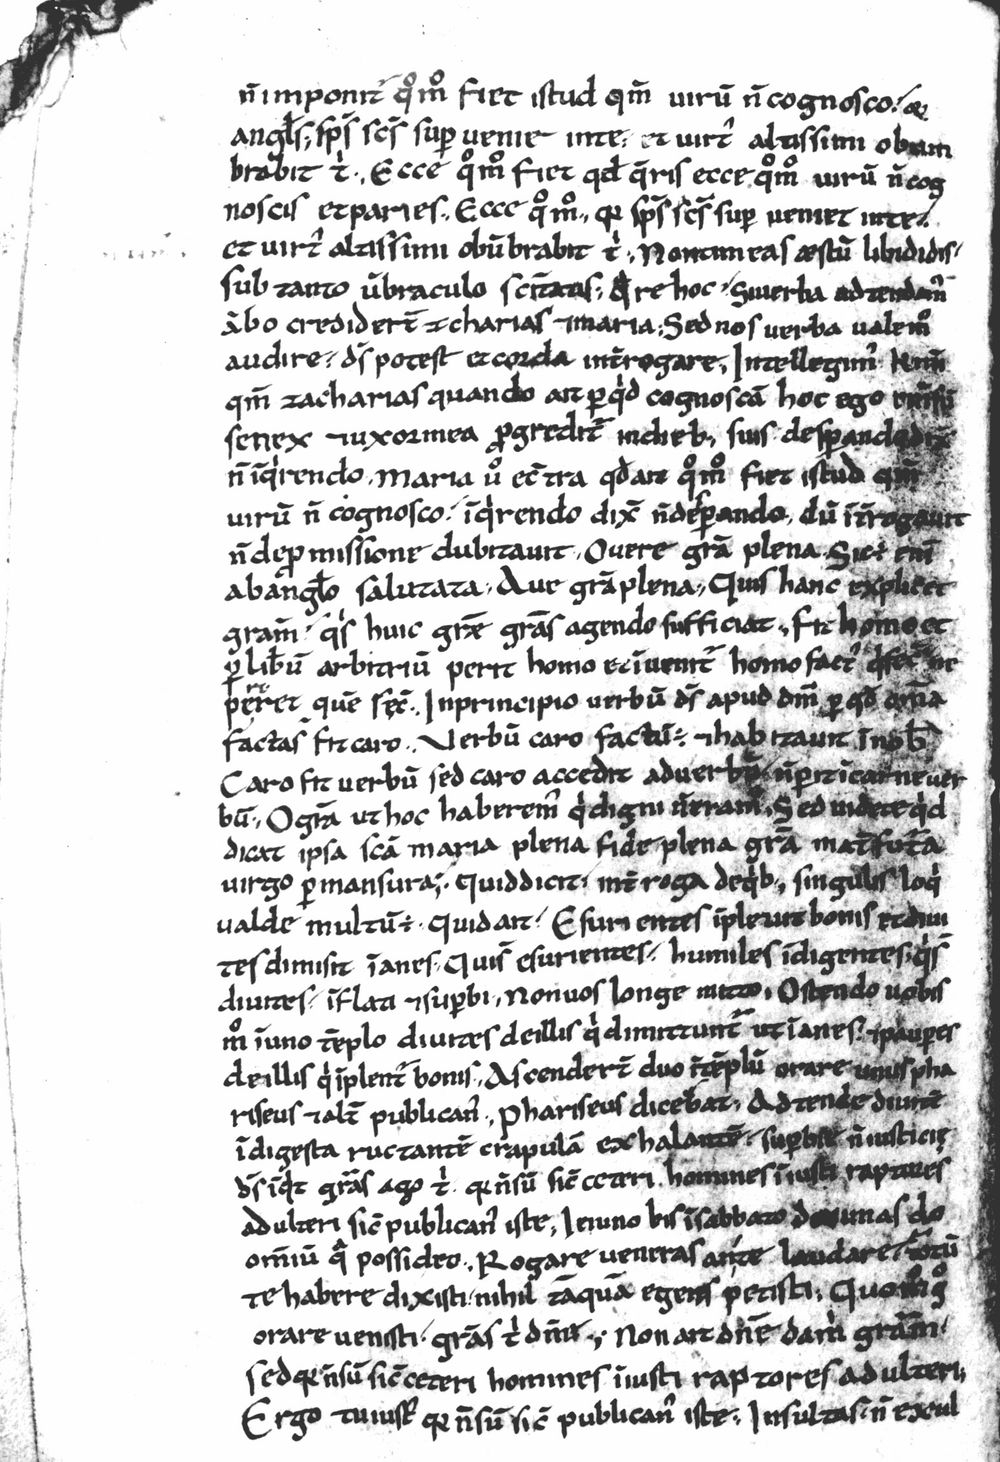 n̄ imponit᷒ qͦmͦ fiet istud qm̄ virū n̄ cognosco. &
angl̄s, sp̄s sc̄s sup veniet inte, et virt᷒ altissimi obum
brabit t̄. Ecce qͦmͦ fiet qd̄ q̄ris ecce qͦmͦ virū n̄ cog
noscis et paries. Ecce qͦmͦ, qr sp̄s sc̄s sup veniet inte,
et virt᷒ altissimi obūbrabit t̄. Non timeas æstū libididis,
sub tanto ūbraculo sc̄itatis, Qre hoc. Si verba adtendam᷒
ābo crediderт̄ zcharias ⁊ maria, Sed nos verba valem᷒
audire, ds̄ potest et corda int̄rogare, Intellegim᷒
qm̄ zacharias quando ait p qͥd cognoscā hoc ego
senex ⁊ uxor mea ꝓgredit᷒ indieb, suis desperando
n̄ īqͥrendo. Maria uͦ ec̄tra qd̄ ait qͦmͦ fiet istud qm̄
virū n̄ cognosco. īqͥrendo dix̄ n̄ desperando, dū īt̄rogavit
n̄ de ꝓmissione dubitavit. O vere grā plena. Sic ÷ enī
ab anglo salutata. Ave grā plena, Quis hanc explicet
gram̄. qͥs huic grē grās agendo sufficiat. Fit homo et
p lib̄ū arbitriū perit homo et īvenit᷒ homo fact᷒
periret quē fec̄. In principio verbū ds̄ apud dm̄ p qd̄ om̄a
facta s̄ fit caro. Verbū caro factū ÷ ⁊ habitavit īnob̄
Caro fit verbū sed caro accedit ad verbū n̄ perit ī carne ver
bū, O grā ut hoc haberem᷒ qͥ digni n̄ eram᷒. Sed videte qͥd
dicat ipsa scā maria plena fide plena grā mat̄ futura
virgo p mansura, Quid dicit, int̄ roga de qͥb, singulis loqͥ
valde multū ÷. Quid ait. Esurientes īplevit bonis et divi
tes dimisit īanes. Quis̄ esurientes. humiles īdigentes, qͥs̄
divites. īflati ⁊ supbi, Non vos longe mitto, Ostendo vobis
mͦ ī uno tēplo divites de illis qͥ dimittunt᷒ ut īanes ⁊ paupes
de illis qͥ īplent᷒ bonis, Ascendert̄ duo ī tēplū orare unus pha
riseus ⁊ alt̄ publican᷒, Phariseus dicebat, Adtende divitē
īdigesta ructantē crapulā exhalantē. supbiē n̄ iusticię
ds̄ īqͥt grās ago t̄ qr n̄ sū sic̄ ceteri homines īiusti raptores
adulteri sic̄ publican᷒ iste, Ieiuno bis ī sabbato decimas do
omīū q̄ possideo. Rogare veneras an te laudare, totū
te habere dixisti nihil tāquā egens petisti, Quomͦ gͦ
orare venisti. grās t̄ dn̄e, Non ait dn̄e da m̄ gram̄
sed qr n̄ sū sic̄ ceteri homines īiusti raptores adulteri,
Ergo tu iust᷒ qr n̄ sū sic̄ publican᷒ iste, Insultas n̄ exul